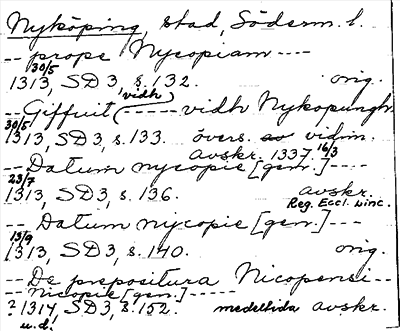 Nyköping, stad, Söderm. l.
-- prope Nycopiam ----
30/5
1313, SD 3, s. 132. orig.
vidh
-- Giffuit (----- vidh Nykopungh
30/5
1313, SD 3, s. 133. övers. av vidim.
avskr. 1337. 16/3
-- Datum nycopie [gen.] ----
23/7
1313, SD 3, s. 136. avskr.
Reg. Eccl. Linc.
-- Datum nycopie [gen.] ---
13/9
1313, SD 3, s. 140. orig.
-- De prepositura Nicopensi --
Nicopie [gen.] -----
? 1314, SD 3, s. 152. medeltida avskr.
u.d.